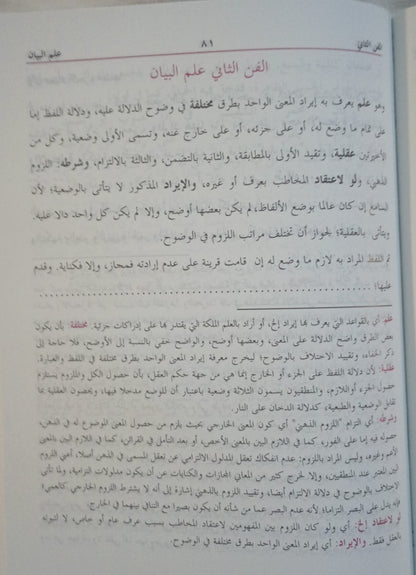 الفن الثاني ٨١ علم البيان
الفن الثاني علم البيان
وهو علم يعرف به إيراد المعنى الواحد بطرق مختلفة في وضوح الدلالة عليه، ودلالة اللفظ إما
على تمام ما وضع له، أو على جزئه، أو على خارج عنه، وتسمى الأولى وضعية، وكل من
الأخيرتين عقلية، وتقيد الأولى بالمطابقة، والثانية بالتضمن، والثالثة بالالتزام، وشرطه: اللزوم
الذهني، ولو لاعتقاد المخاطب بعرف أو غيره، والإيراد المذكور لا يتأتى بالوضعية؛ لأن
السامع إن كان عالما بوضع الألفاظ، لم يكن بعضها أوضح، وإلا لم يكن كل واحد دالا عليه.
ويتأتى بالعقلية؛ لجواز أن تختلف مراتب اللزوم في الوضوح.
ثم اللفظ المراد به لازم ما وضع له إن قامت قرينة على عدم إرادته فمجاز، وإلا فكناية. وقدم
عليها؛ ........................................
علم: أي بالقواعد التي يعرف بها إيراد إلخ، أو أراد بالعلم الملكة التي يقتدر بها على إدراكات جزئية. مختلفة: بأن يكون
بعض الطرق واضح الدلالة على المعنى، وبعضها أوضح، والواضح خفي بالنسبة إلى الأوضح، فلا حاجة إلى
ذكر الخفاء، وتقييد الاختلاف بالوضوح؛ ليخرج معرفة إيراد المعنى الواحد بطرق مختلفة في اللفظ والعبارة.
عقلية: لأن دلالة اللفظ على الجزء أو الخارج إنما هي من جهة حكم العقل، بأن حصول الكل والملزوم يستلزم
حصول الجزء أو اللازم، والمنطقيون يسمون الثلاثة وضعية باعتبار أن للوضع مدخلا فيها، ويخصون العقلية بما
تقابل الوضعية والطبعية، كدلالة الدخان على النار.
وشرطه: أي التزام "اللزوم الذهني" أي كون المعنى الخارجي بحيث يلزم من حصول المعنى الموضوع له في الذهن،
حصوله فيه إما على الفور، كما في اللازم البين بالمعنى الأخص، أو بعد التأمل في القرائن، كما في اللازم البين بالمعنى
الأعم وغيره، وليس المراد باللزوم: عدم انفكاك تعقل المدلول الالتزامي عن تعقل المسمى في الذهن أصلا، أعني اللزوم
البين المعتبر عند المنطقيين، وإلا لخرج كثير من المعاني المجازات والكنايات عن أن يكون مدلولات التزامية، ولما تأتى
الاختلاف بالوضوح في دلالة الالتزام أيضا، وتقييد اللزوم بالذهني إشارة إلى أنه لا يشترط اللزوم الخارجي كالعمى؛
فإنه يدل على البصر التزاما؛ لأنه عدم البصر عما من شأنه أن يكون بصيرا مع التنافي بينهما في الخارج.
لو لاعتقاد إلخ: أي ولو كان اللزوم بين المفهومين لاعتقاد المخاطب بسبب عرف عام أو خاص، لا لثبوته
بالعقل فقط. والإيراد: أي إيراد المعنى الواحد بطرق مختلفة في الوضوح.